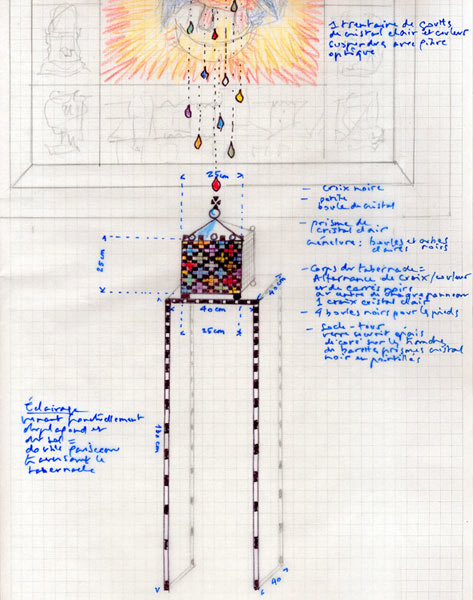 1 trentaine de goutts
de cristal clair et couleur
suspendus avec fibre
optique
25cm
- croix noire
- petite
boule du cristal
- prisme de
cristal clair
crénelure: boules et cubes
clairs noirs
25cm
- Corps du tabernacle =
Alternance de croix/couleur
et de carrés noirs
au centre de chaque panneau
1 croix cristal clair
- 4 boules noirs pour les pieds
40cm
40cm
25cm
- Socle-tour
verre securit épais
décoré sur les tranches
de barettes prismes cristal
noir en pointillés
Éclairage
venant ponctuellement
du plafond et
du sol =
double faisceau
traversant le
tabernacle
122 cm
40